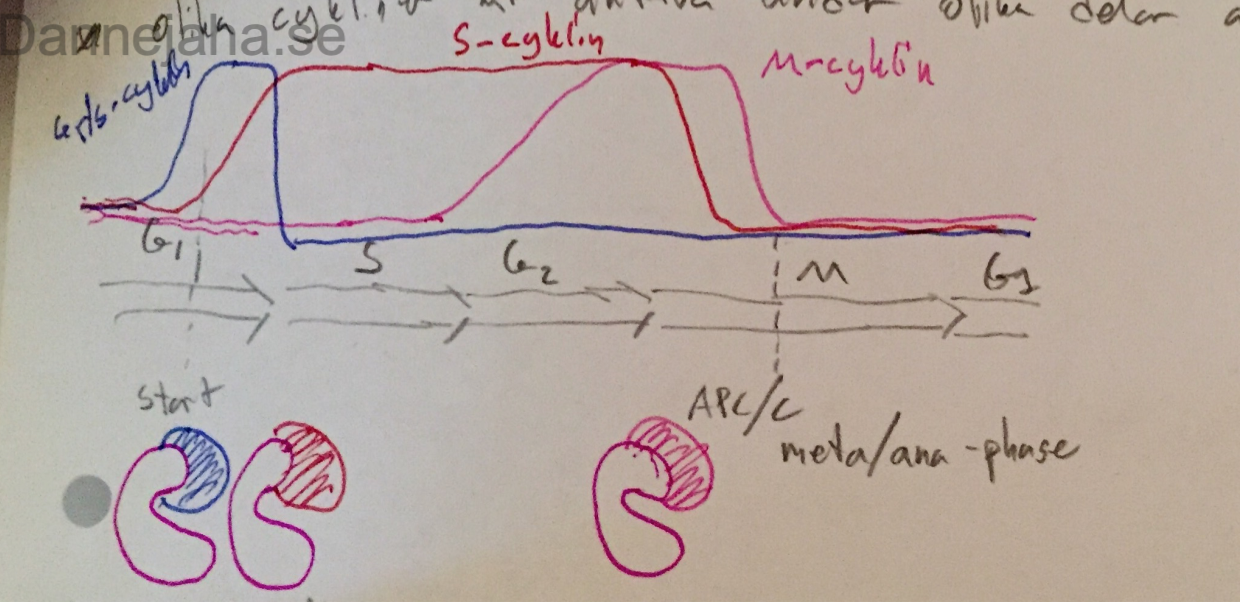 olika cyklin är aktiva under olika delar a
Dannejaha.se
S-cyklin
M-cyklin
G1/s-cyklin
G1 S G2 M G1
Start
APC/C
meta/ana-phase